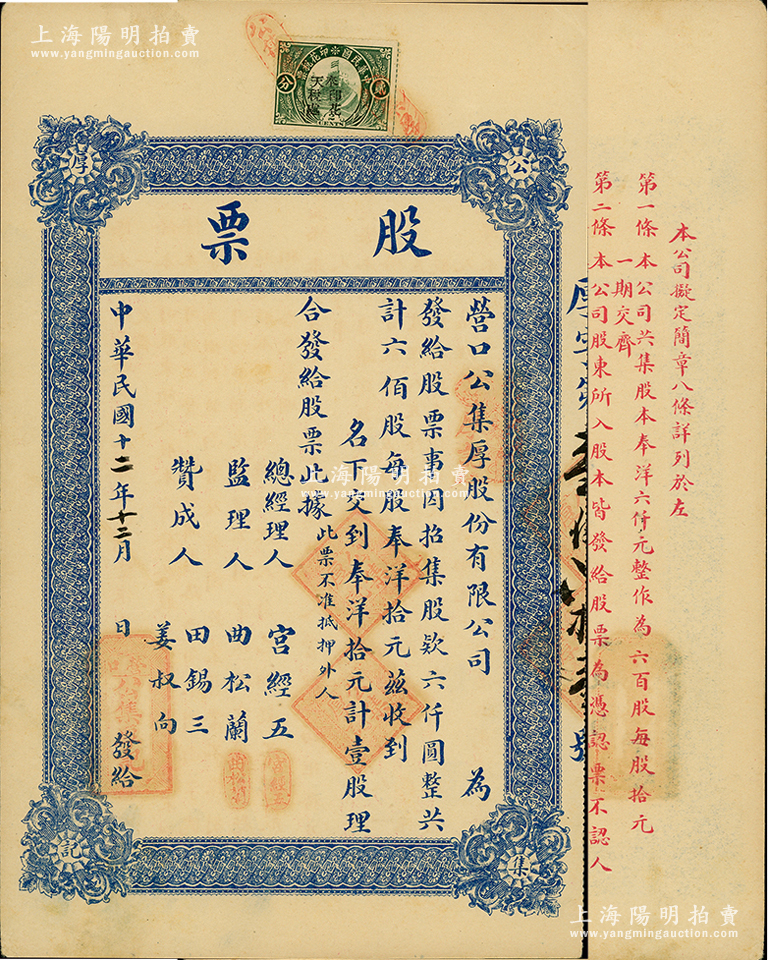 上海陽明拍賣
www.yangmingauction.com
上海陽明拍賣
www.yangmingauction.com
中華民國印花稅票
貳
分
CENTS
公
厚
集
記
股票
本公司擬定簡章八條詳列於左
第一條 本公司共集股本奉洋六仟元整作為六百股每股拾元
一期交齊
第二條 本公司股東所入股本皆發給股票為憑認票不認人
厚字第
號
營口公集厚股份有限公司 為
發給股票事因招集股欵六仟圓整共
計六佰股每股奉洋拾元茲收到
名下交到奉洋拾元計壹股理
合發給股票此據
此票不准抵押外人
總經理人 宮經五
監理人 曲松蘭
贊成人 田錫三
姜叔向
中華民國十二年十二月 日 發給
宮經五
上海陽明拍賣
www.yangmingauction.com
上海陽明拍賣
www.yangmingauction.com